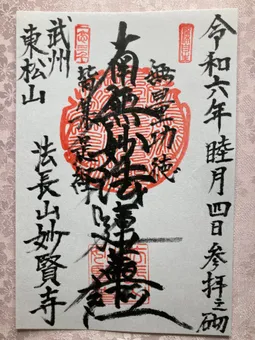 令和六年睦月四日参拝之砌
無量功徳
南無妙法蓮華経
法長山妙賢寺
武州
東松山